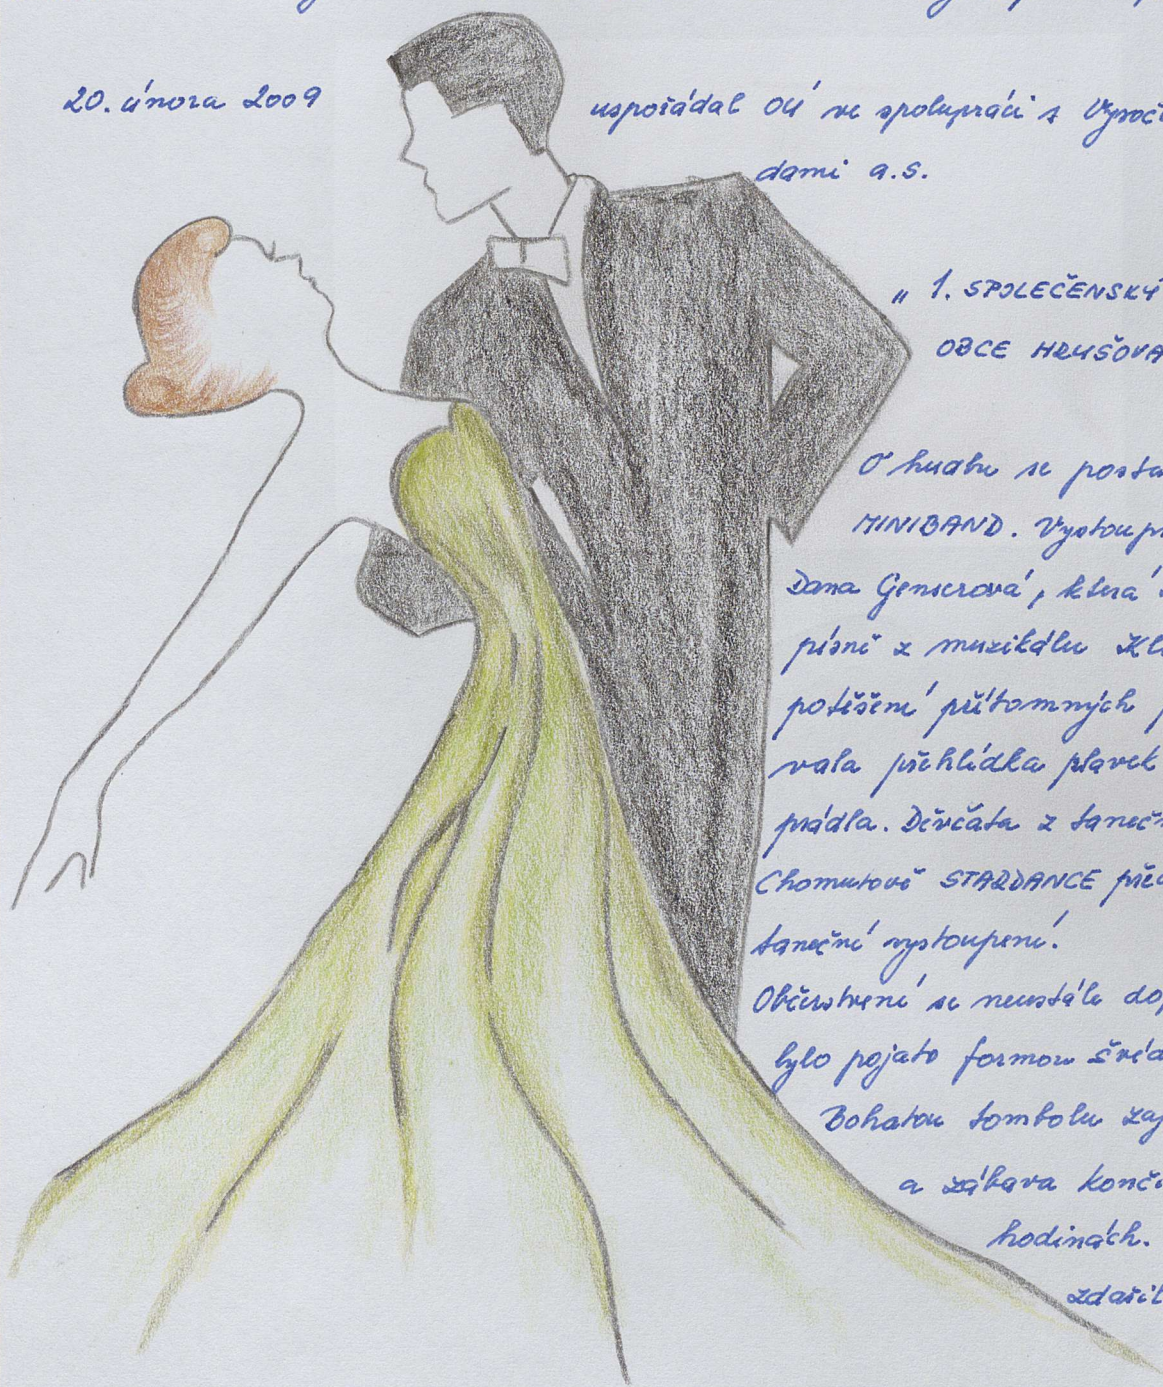 20. února 2009 uspořádal OÚ ve spolupráci s Vysoč
dami a.s.
„ 1. SPOLEČENSKÝ
OBCE HRUŠOVA
O hudbu se posta
MINIBAND. Vystoupi
Dana Genserová, která
písně z muzikálu Kl
potěšení přítomných p
vala přehlídka plavek
prádla. Děvčata z taneč
Chomutově STARDANCE před
taneční vystoupení.
Občerstvení se neustále dop
bylo pojato formou švéd
Bohatou tombolu zaj
a zábava konči
hodinách.
zdařil